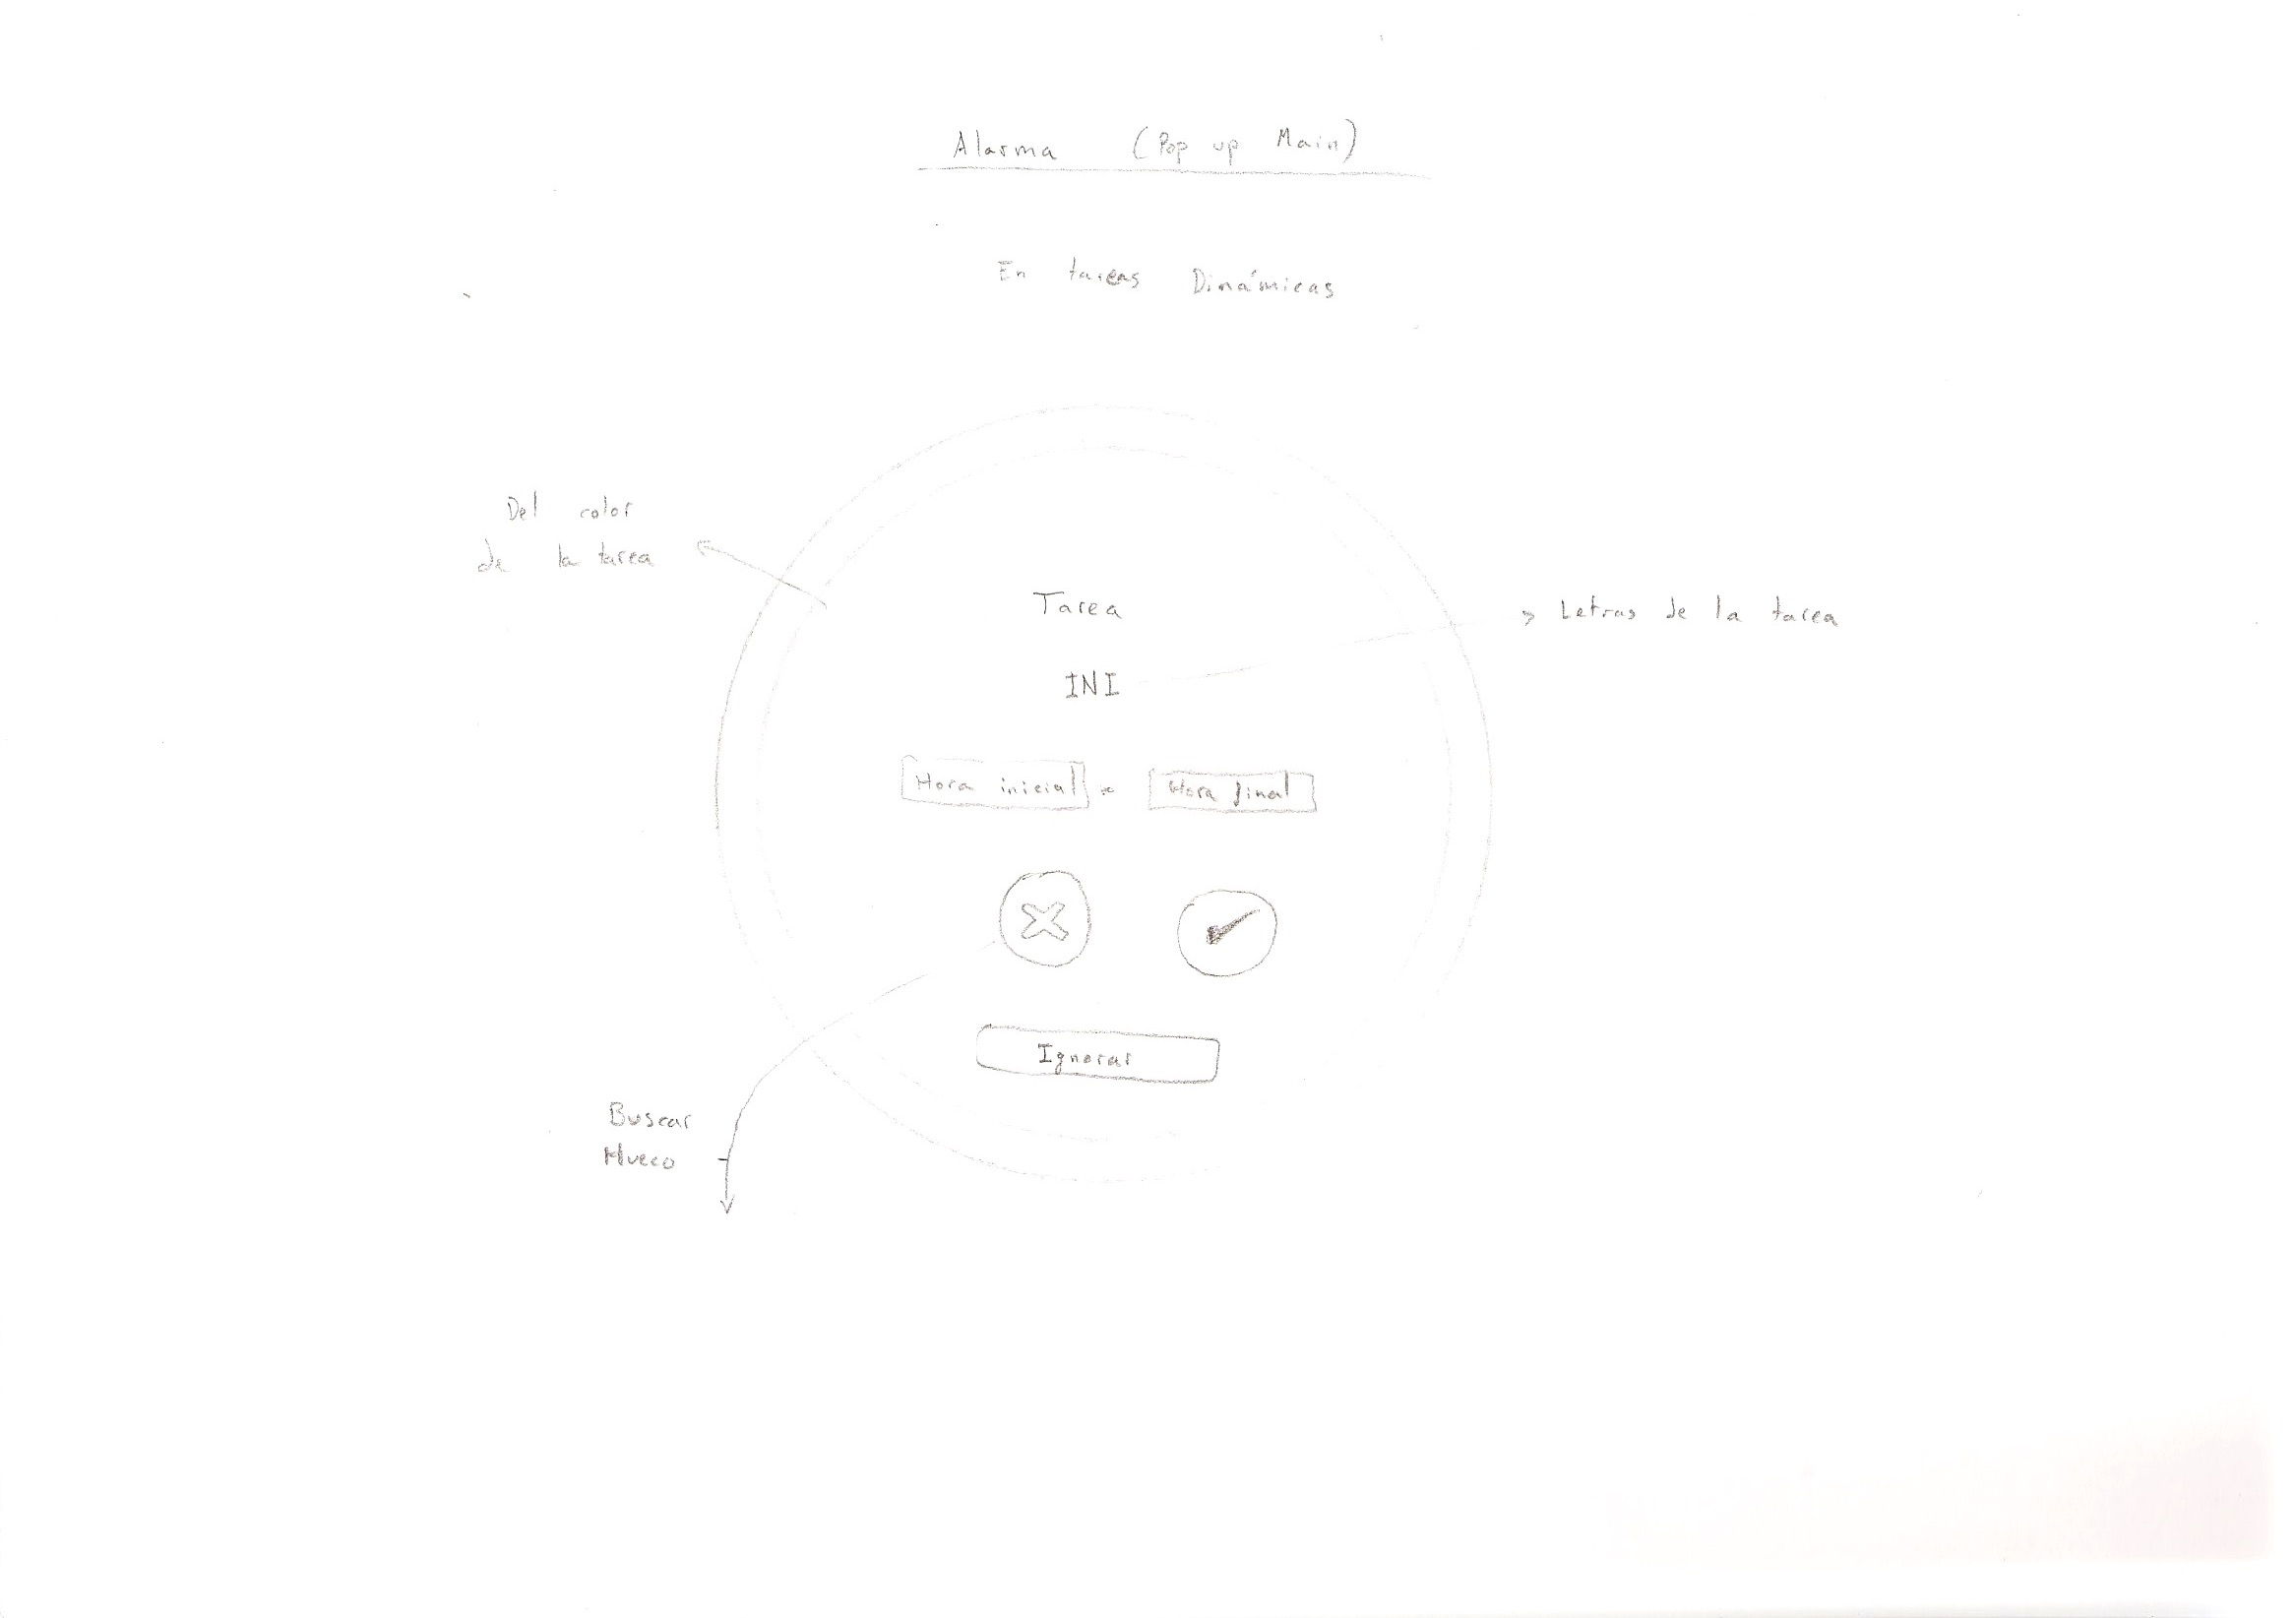 Alarma (Pop up Main)
En tareas Dinámicas
Del color
de la tarea
Tarea
Letras de la tarea
INI
Hora inicial - Hora final
Ignorar
Buscar
Hueco